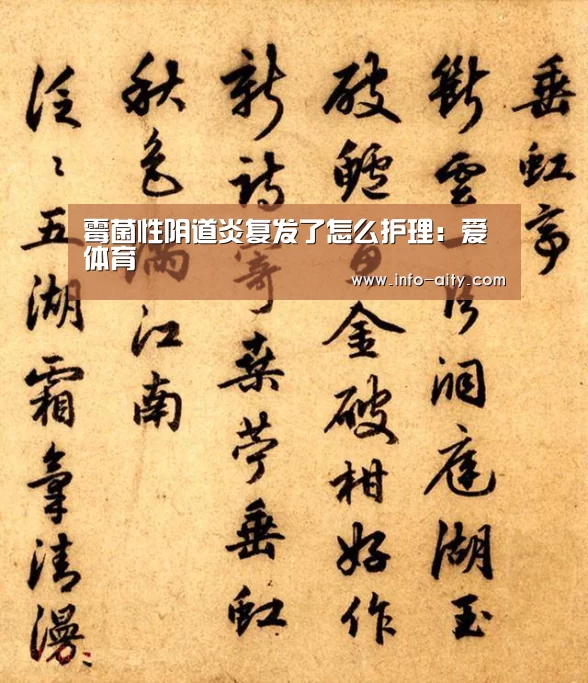 垂虹亭
斷雲一片洞庭湖玉
破鱸魚金破柑好作
新詩寄桑苧垂虹
秋色滿江南
泛〻五湖霜氣清漫〻
霉菌性阴道炎复发了怎么护理：爱
体育
www.info-aity.com